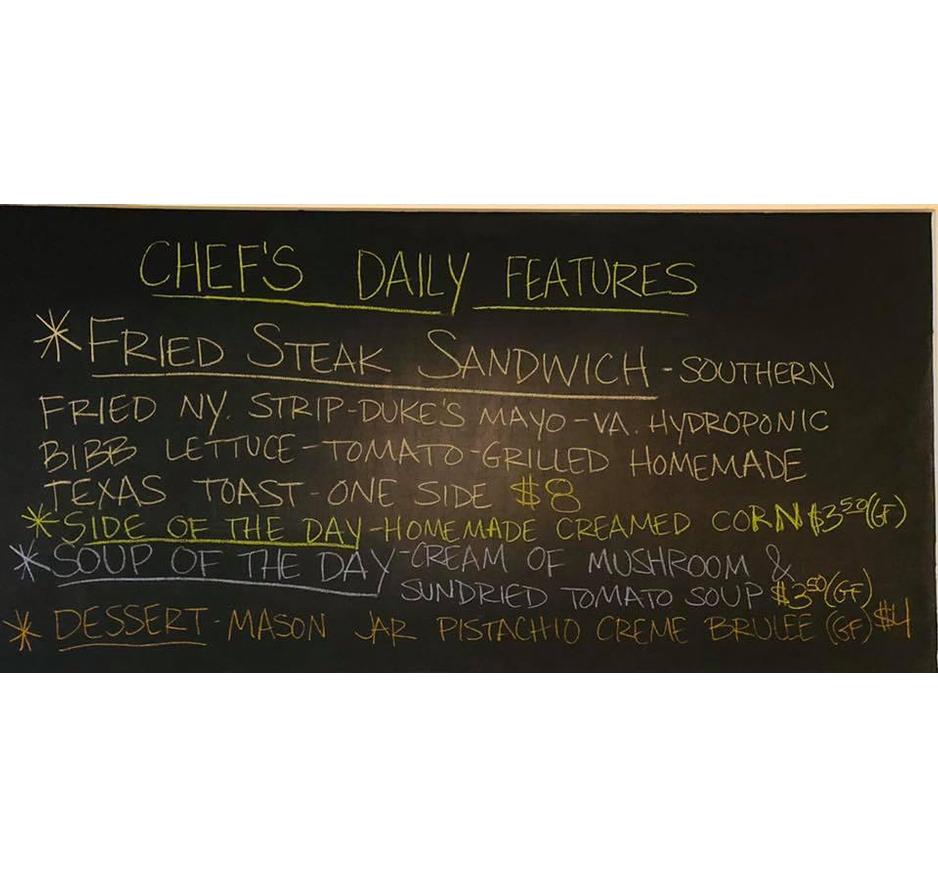 CHEF'S DAILY FEATURES
* FRIED STEAK SANDWICH - SOUTHERN
FRIED NY. STRIP - DUKE'S MAYO - VA. HYDROPONIC
BIBB LETTUCE - TOMATO - GRILLED HOMEMADE
TEXAS TOAST - ONE SIDE $8
* SIDE OF THE DAY - HOMEMADE CREAMED CORN $3.50 (GF)
* SOUP OF THE DAY - CREAM OF MUSHROOM &
SUNDRIED TOMATO SOUP $3.50 (GF)
* DESSERT - MASON JAR PISTACHIO CREME BRULEE (GF) $4